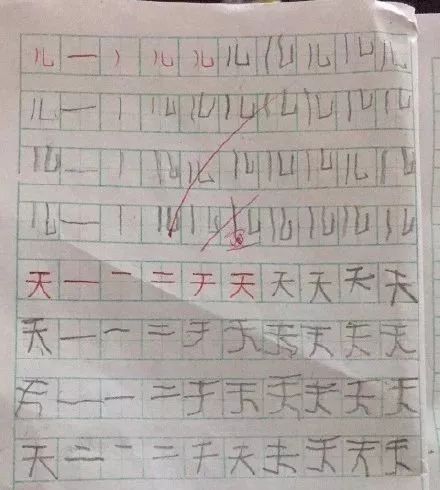 儿 一 丿 儿 儿 儿 儿 儿 儿 儿
儿 一 丿 儿 儿 儿 儿 儿 儿 儿
儿 一 丿 儿 儿 儿 儿 儿 儿 儿
儿 一 丿 儿 儿 儿 儿 儿 儿
天 一 一 二 天 天 天 天 天
天 一 一 二 天 天 天 天 天
天 一 一 二 天 天 天 天 天
天 二 一 二 天 天 天 天 天